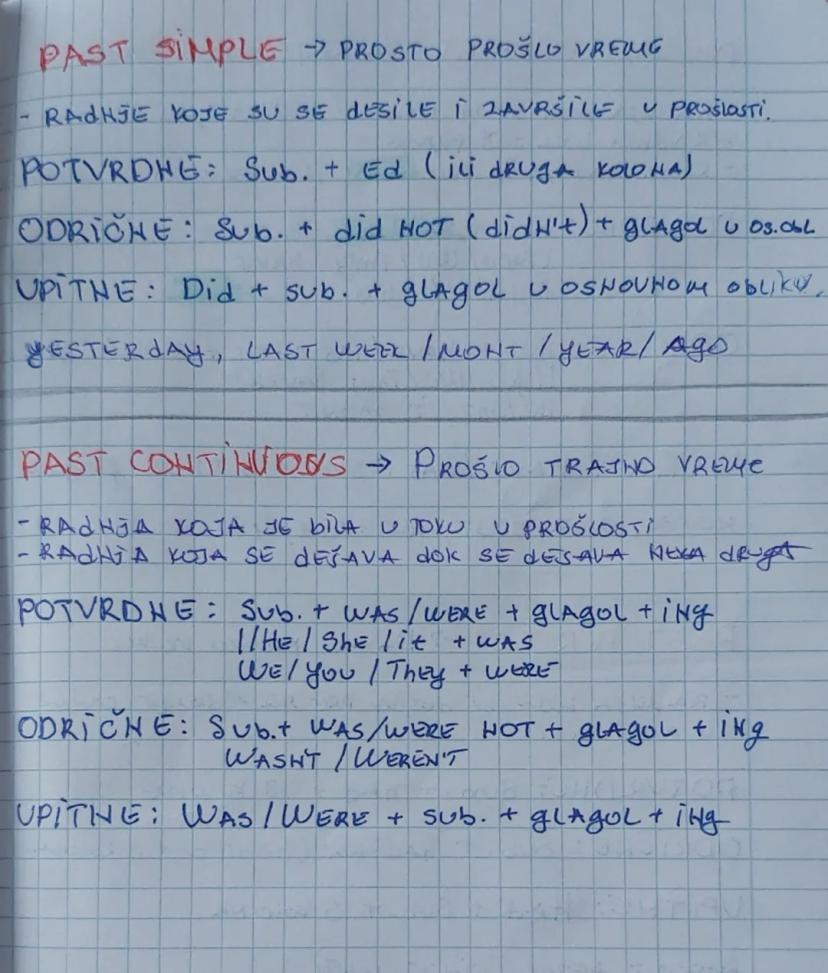 PAST SIMPLE → PROSTO PROŠLO VREME
- RADNJE KOJE SU SE DESILE I ZAVRŠILE U PROŠLOSTI.
POTVRDNE: Sub. + Ed (ili DRUGA KOLONA)
ODRIČNE: Sub. + did NOT (didN't) + glagol u os.obl
UPITNE: Did + sub. + glagol u OSNOVNOM obliku.
YESTERDAY, LAST WEEK / MONT / YEAR / AGO
PAST CONTINUOUS → PROŠLO TRAJNO VREME
- RADNJA KOJA JE BILA U TOKU U PROŠLOSTI
- RADNJA KOJA SE DEŠAVA dok SE DEŠAVA NEKA druga
POTVRDNE: Sub. + WAS/WERE + glagol + ing
I/HE/SHE/it + WAS
WE/you/They + WERE
ODRIČNE: Sub.+ WAS/WERE NOT + glagol + ing
WASN'T / WEREN'T
UPITNE: WAS/WERE + sub. + glagol + ing